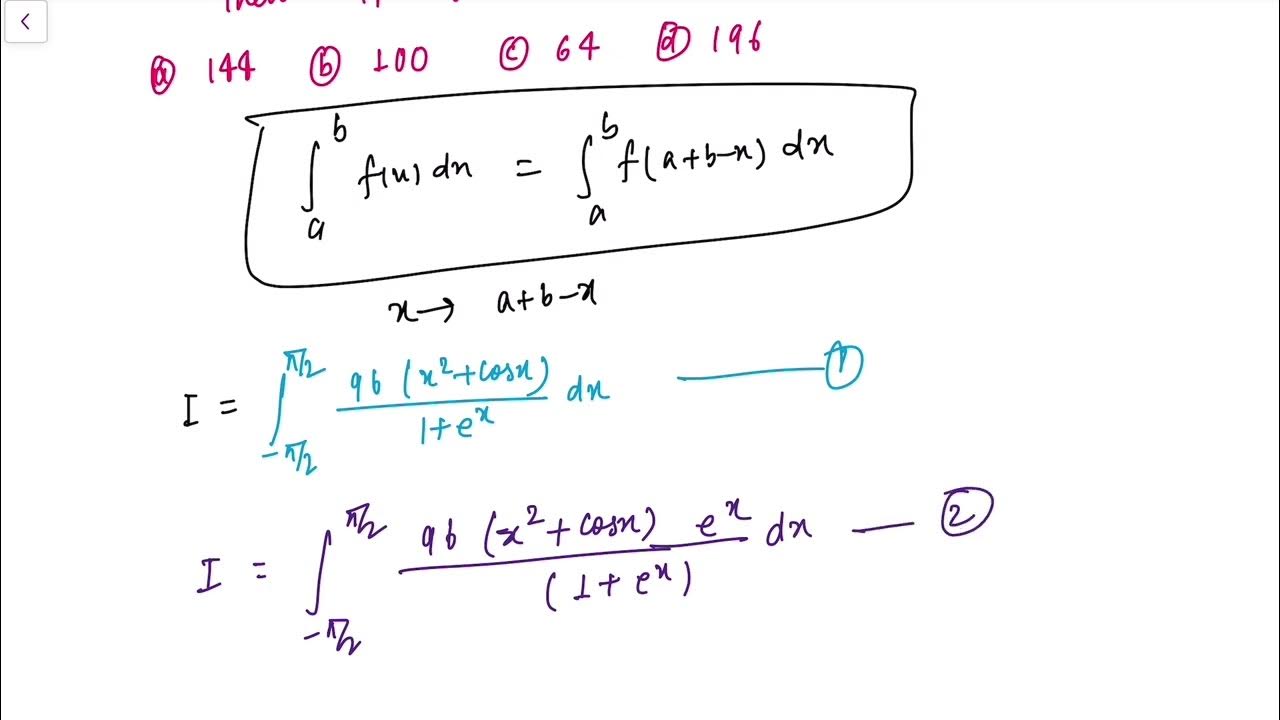 ⓐ 144 ⓑ 100 ⓒ 64 ⓓ 196
∫_a^b f(x) dx = ∫_a^b f(a+b-x) dx
x → a+b-x
I = ∫_{-π/2}^{π/2} 96 (x²+cosx) / 1+e^x dx —— ①
I = ∫_{-π/2}^{π/2} 96 (x²+cosx) e^x / (1+e^x) dx — ②